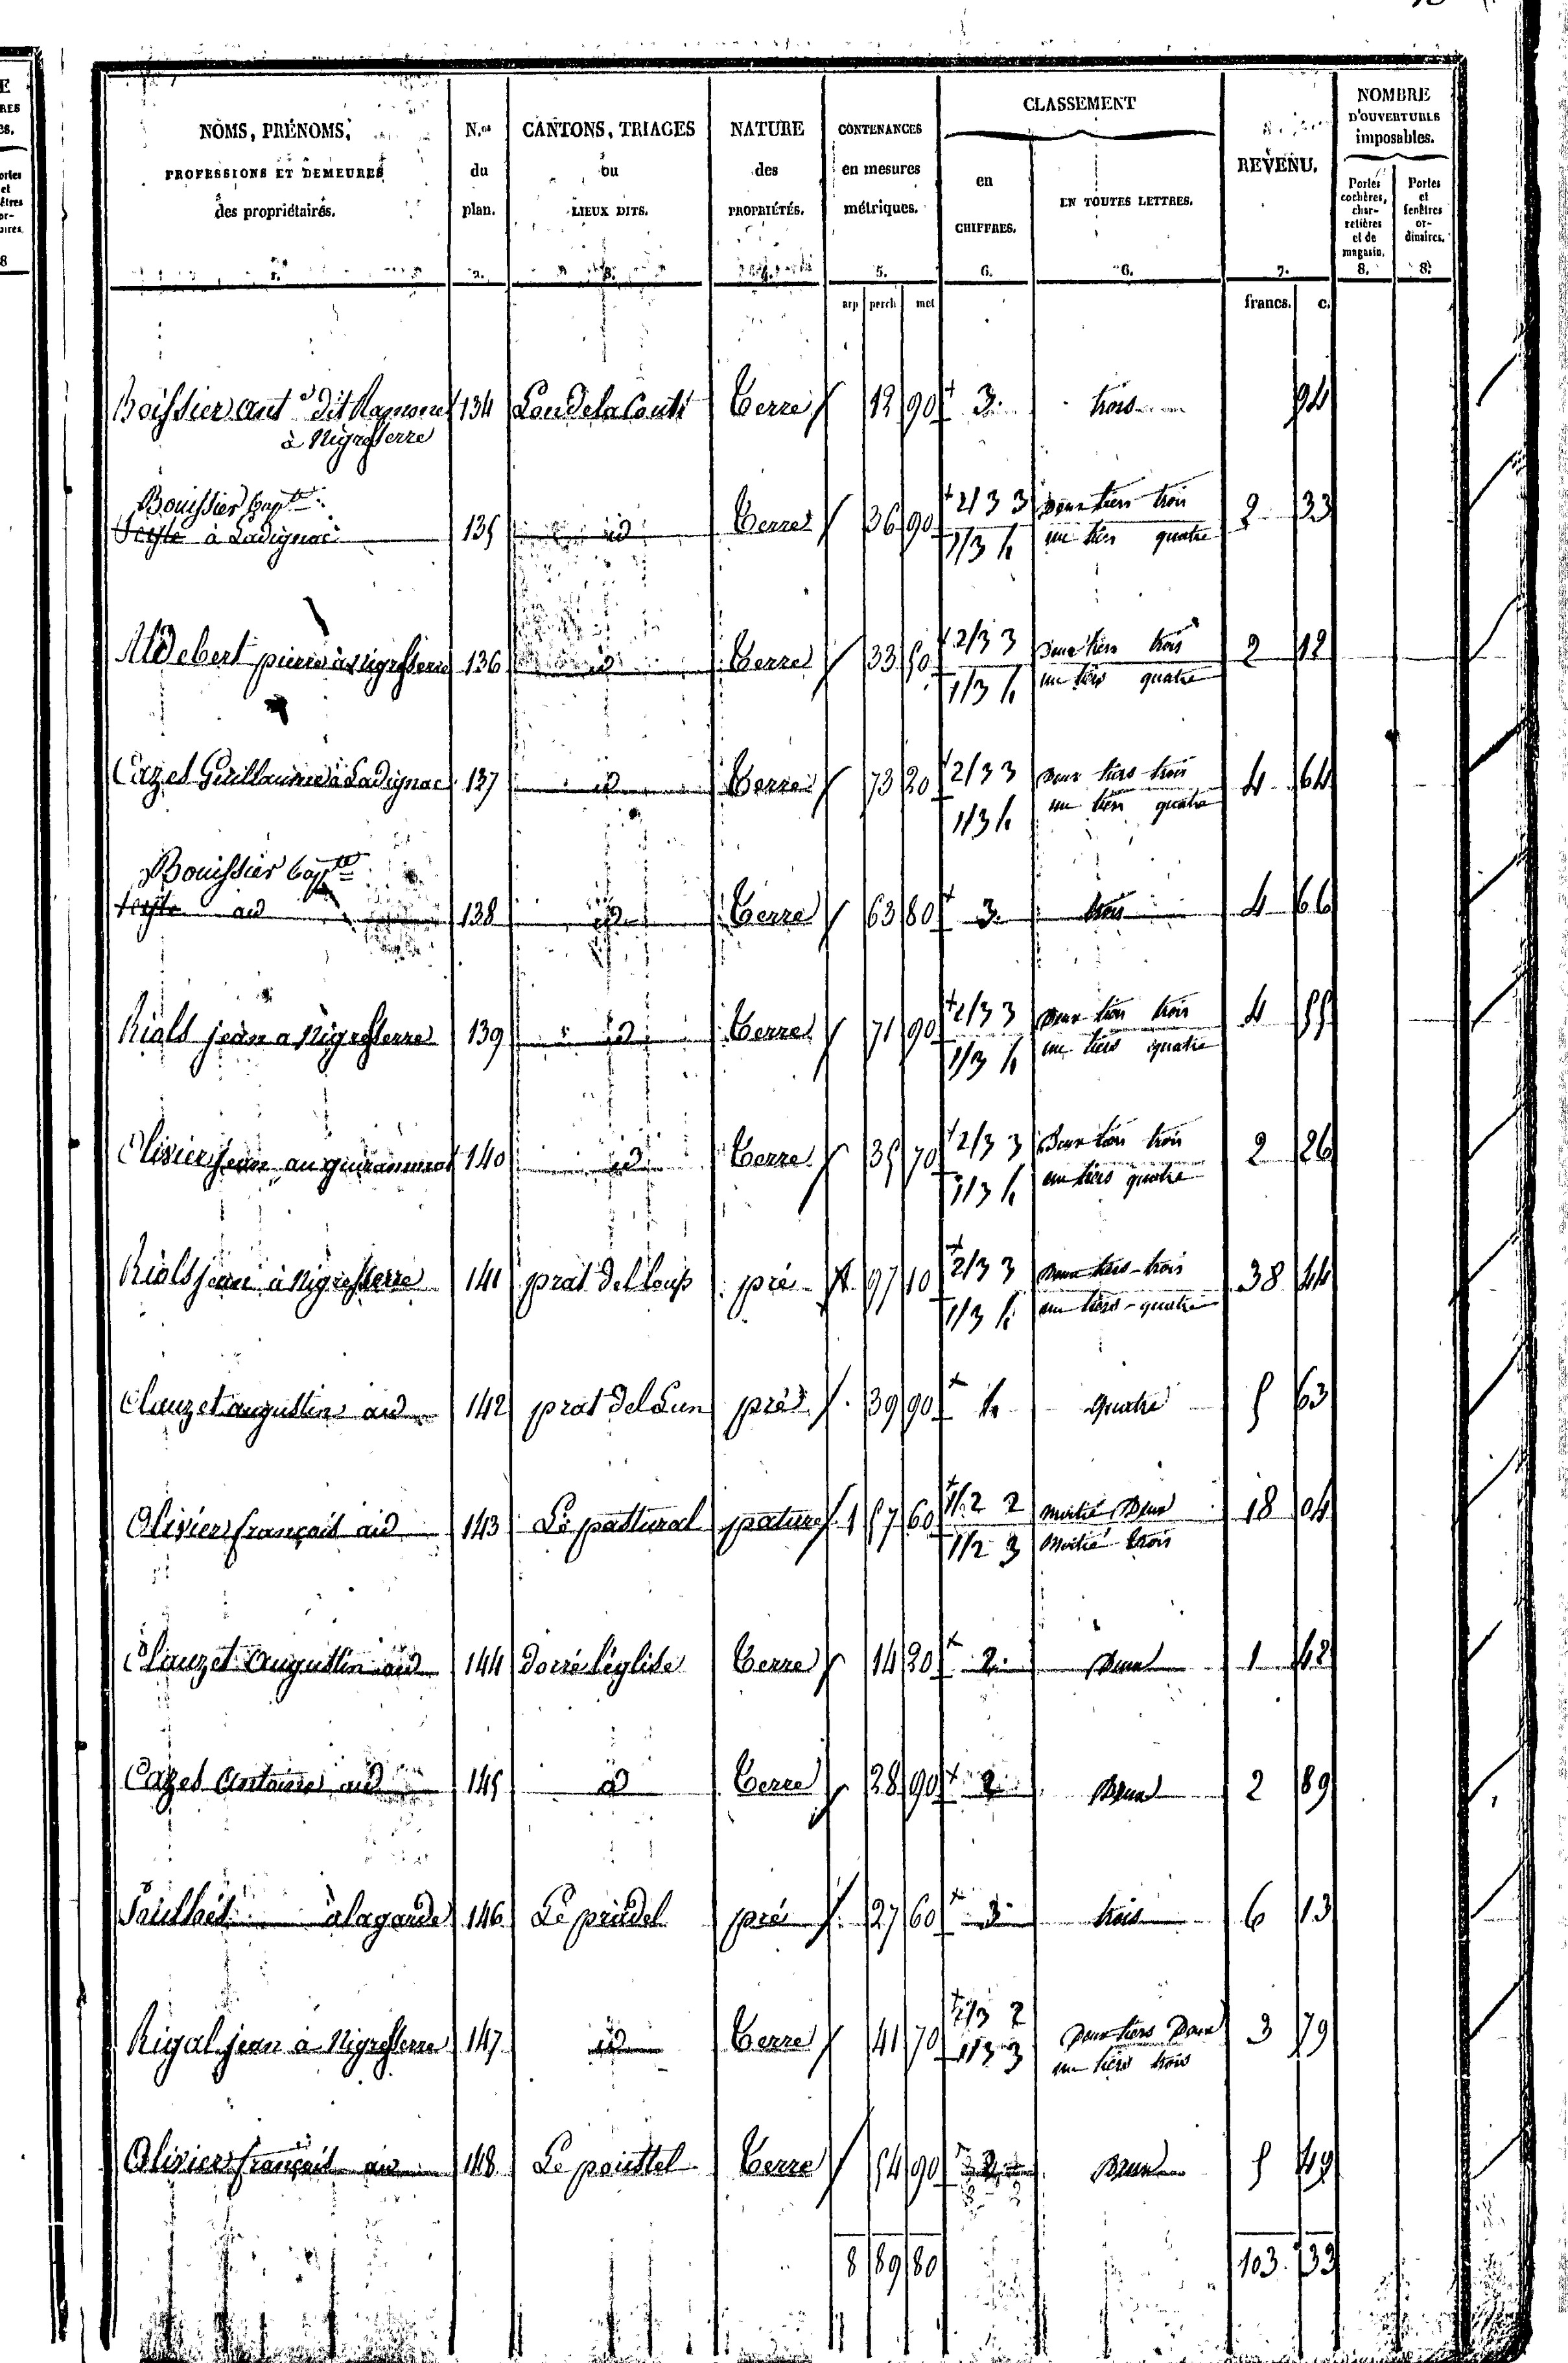 NOMS, PRÉNOMS, PROFESSIONS ET DEMEURES des propriétaires. 1.
N.os du plan. 2.
CANTONS, TRIAGES ou LIEUX DITS. 3.
NATURE des PROPRIÉTÉS. 4.
CONTENANCES en mesures métriques. 5.
CLASSEMENT
en CHIFFRES. 6.
EN TOUTES LETTRES. 6.
REVENU. 7.
NOMBRE D'OUVERTURES imposables.
Portes cochères, charretières et de magasin. 8.
Portes et fenêtres ordinaires. 8.
arp perch met francs. c.
Boissier ant dit Ramonet 134 Terre 12 90 3 trois 94
à Nigresserre
Bouissier Bapte
Teyte à Ladignac 135 id Terre 36 90 2/3 3 Deux tiers trois 2 33
1/3 4 un tiers quatre
Aldebert pierre à Nigresserre 136 id Terre 33 50 2/3 3 Deux tiers trois 2 12
1/3 4 un tiers quatre
Cazes Guillaume à Ladignac 137 id Terre 73 20 2/3 3 Deux tiers trois 4 64
1/3 4 un tiers quatre
Bouissier Bapte
Teyte id 138 id Terre 63 80 3 trois 4 66
Rials jean a Nigresserre 139 id Terre 71 90 2/3 3 Deux tiers trois 4 55
1/3 4 un tiers quatre
Olivier jean au 140 id Terre 35 70 2/3 3 Deux tiers trois 2 26
1/3 4 un tiers quatre
Rials jean à Nigresserre 141 prat del loup pré 97 10 2/3 3 Deux tiers trois 38 44
1/3 4 un tiers quatre
Clauzet augustin aud 142 prat del Lun pré 39 90 4 quatre 5 63
Olivier françois aud 143 Le pastural pature 1 57 60 1/2 2 moitié Deux 18 04
1/2 3 Moitié trois
Clauzet Augustin aud 144 Dorré l'église Terre 14 20 2 Deux 1 42
Cazes Antoine aud 145 id Terre 28 90 2 Deux 2 89
à lagarde 146 Le pradel pré 27 60 3 trois 6 13
Rigal jean à Nigresserre 147 id Terre 41 70 2/3 2 Deux tiers Deux 3 79
1/3 3 un tiers trois
Olivier françois au 148 Le poustel Terre 54 90 2 Deux 5 49
8 89 80 103 33